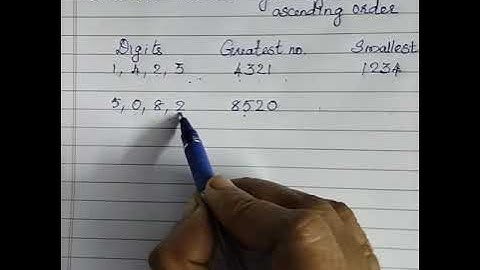 ascending order
Digits Greatest no. Smallest
1, 4, 2, 3 4321 1234
5, 0, 8, 2 8520